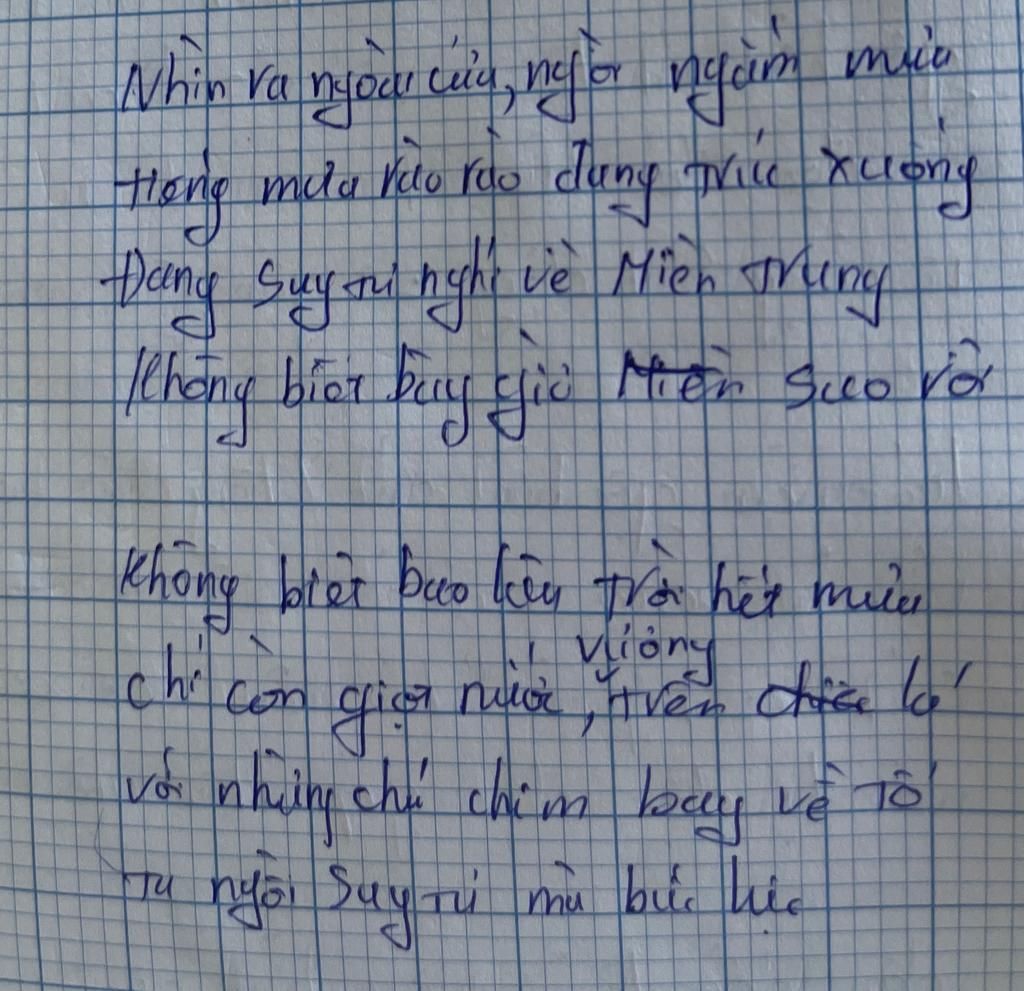 Nhìn ra ngoài cửa, ngồi ngắm mưa
tiếng mưa rào rào đang trút xuống
Đang suy tư nghĩ về Miền Trung
Không biết bây giờ Miền sao rồi
Không biết bao lâu trời hết mưa
chỉ còn giọt nước, vương trên chiếc lá
với những chú chim bay về tổ
ta ngồi suy tư mà bực